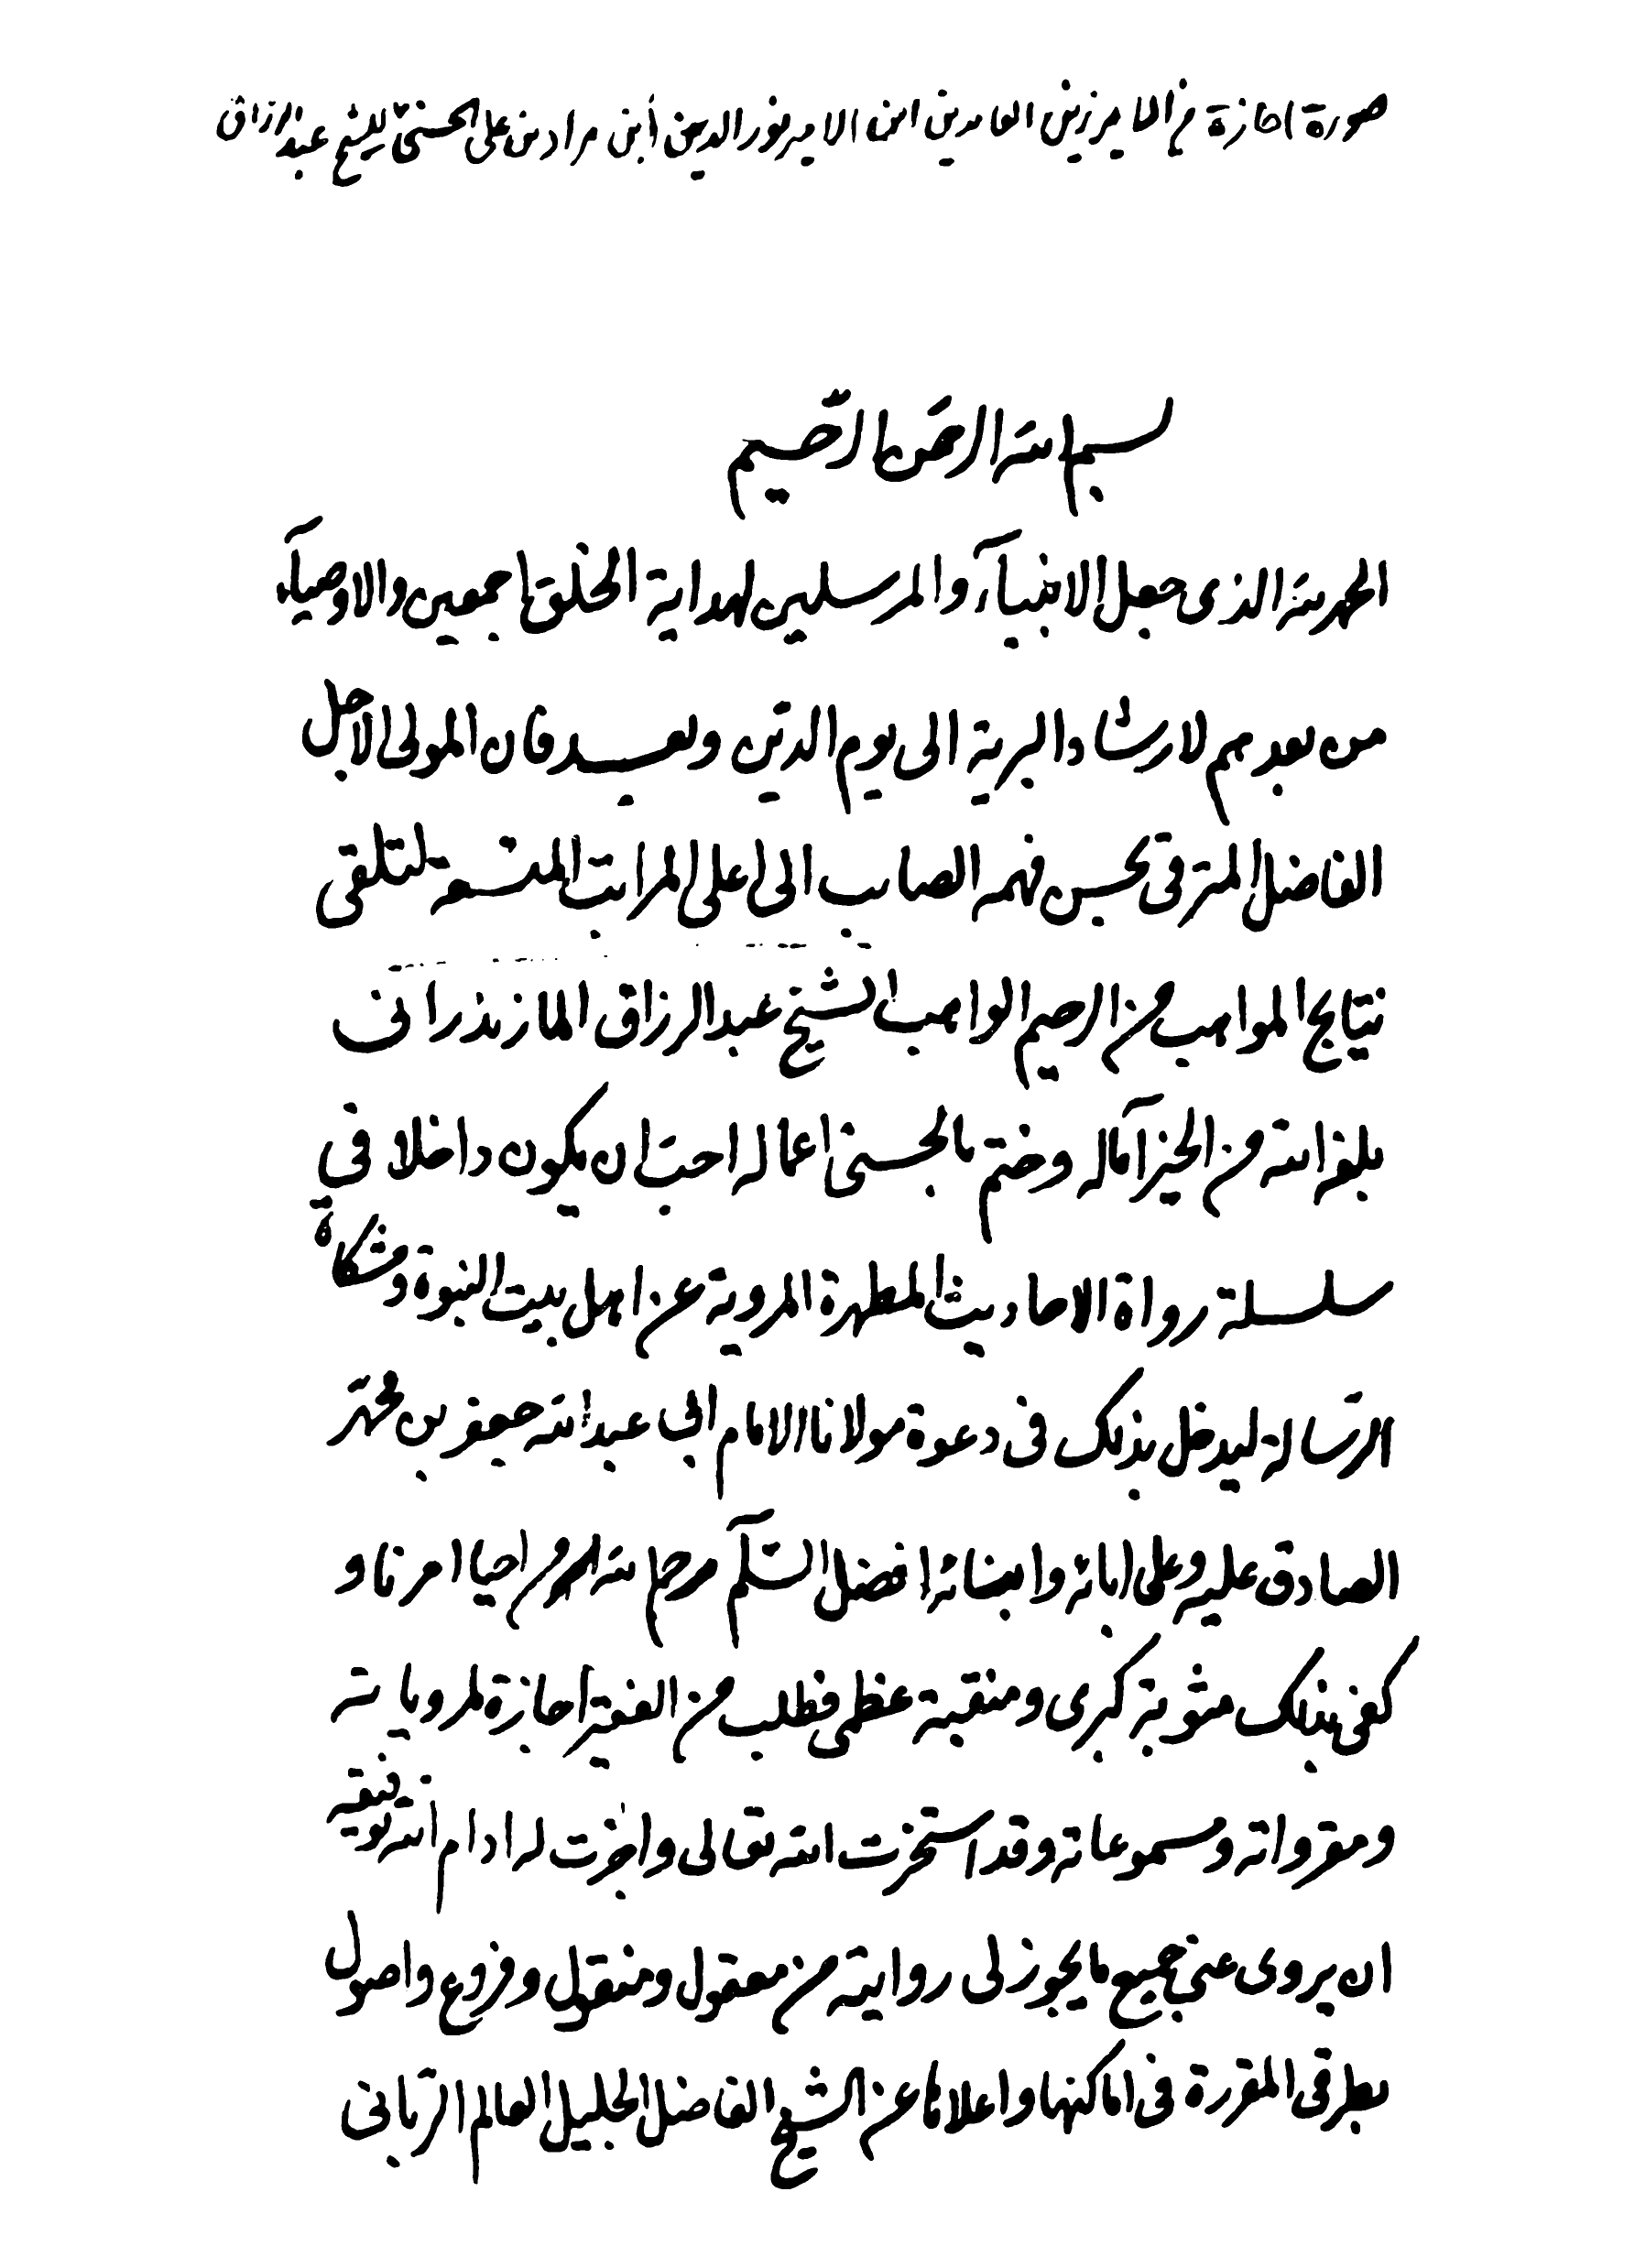 صورة اجازة من الامير زين العابدين ابن الامير نور الدين ابن مراد بن على الحسينى للشيخ عبد الرزاق
بسم الله الرحمن الرحيم
الحمد لله الذى جعل الانبيآء والمرسلين لهداية الخلق اجمعين والاوصيآء
من بعدهم لارشاد البرية الى يوم الدين وبعد فان المولى الاجل
الفاضل المترقى بحسن فهمه الصايب الى اعلى المراتب لتلقى
نتايج المواهب من الرحيم الواهب الشيخ عبد الرزاق المازندرانى
بلغه الله من الخير آماله وختم بالحسنى اعماله احب ان يكون داخلا في
سلسلة رواة الاحاديث المطهرة المروية عن اهل بيت النبوة ومشكاة
الرسالة ليدخل بذلك فى دعوة مولانا الامام ابى عبد الله جعفر بن محمد
الصادق عليه وعلى ابائه وابنائه افضل السلآم رحم الله امرء احيا امرنا و
كفى بذلك مثوبة كبرى ومنقبة عظمى فطلب من الفقير اجازة لمروياته
ومقرواته ومسموعاته وقد استخرت الله تعالى واجزت له ادام الله توفيقه
ان يروى عنى جميع ما يجوز لى روايته من معقول ومنقول وفروع واصول
بطرقى المقررة فى اماكنها واعلاها عن الشيخ الفاضل الجليل العالم الربانى